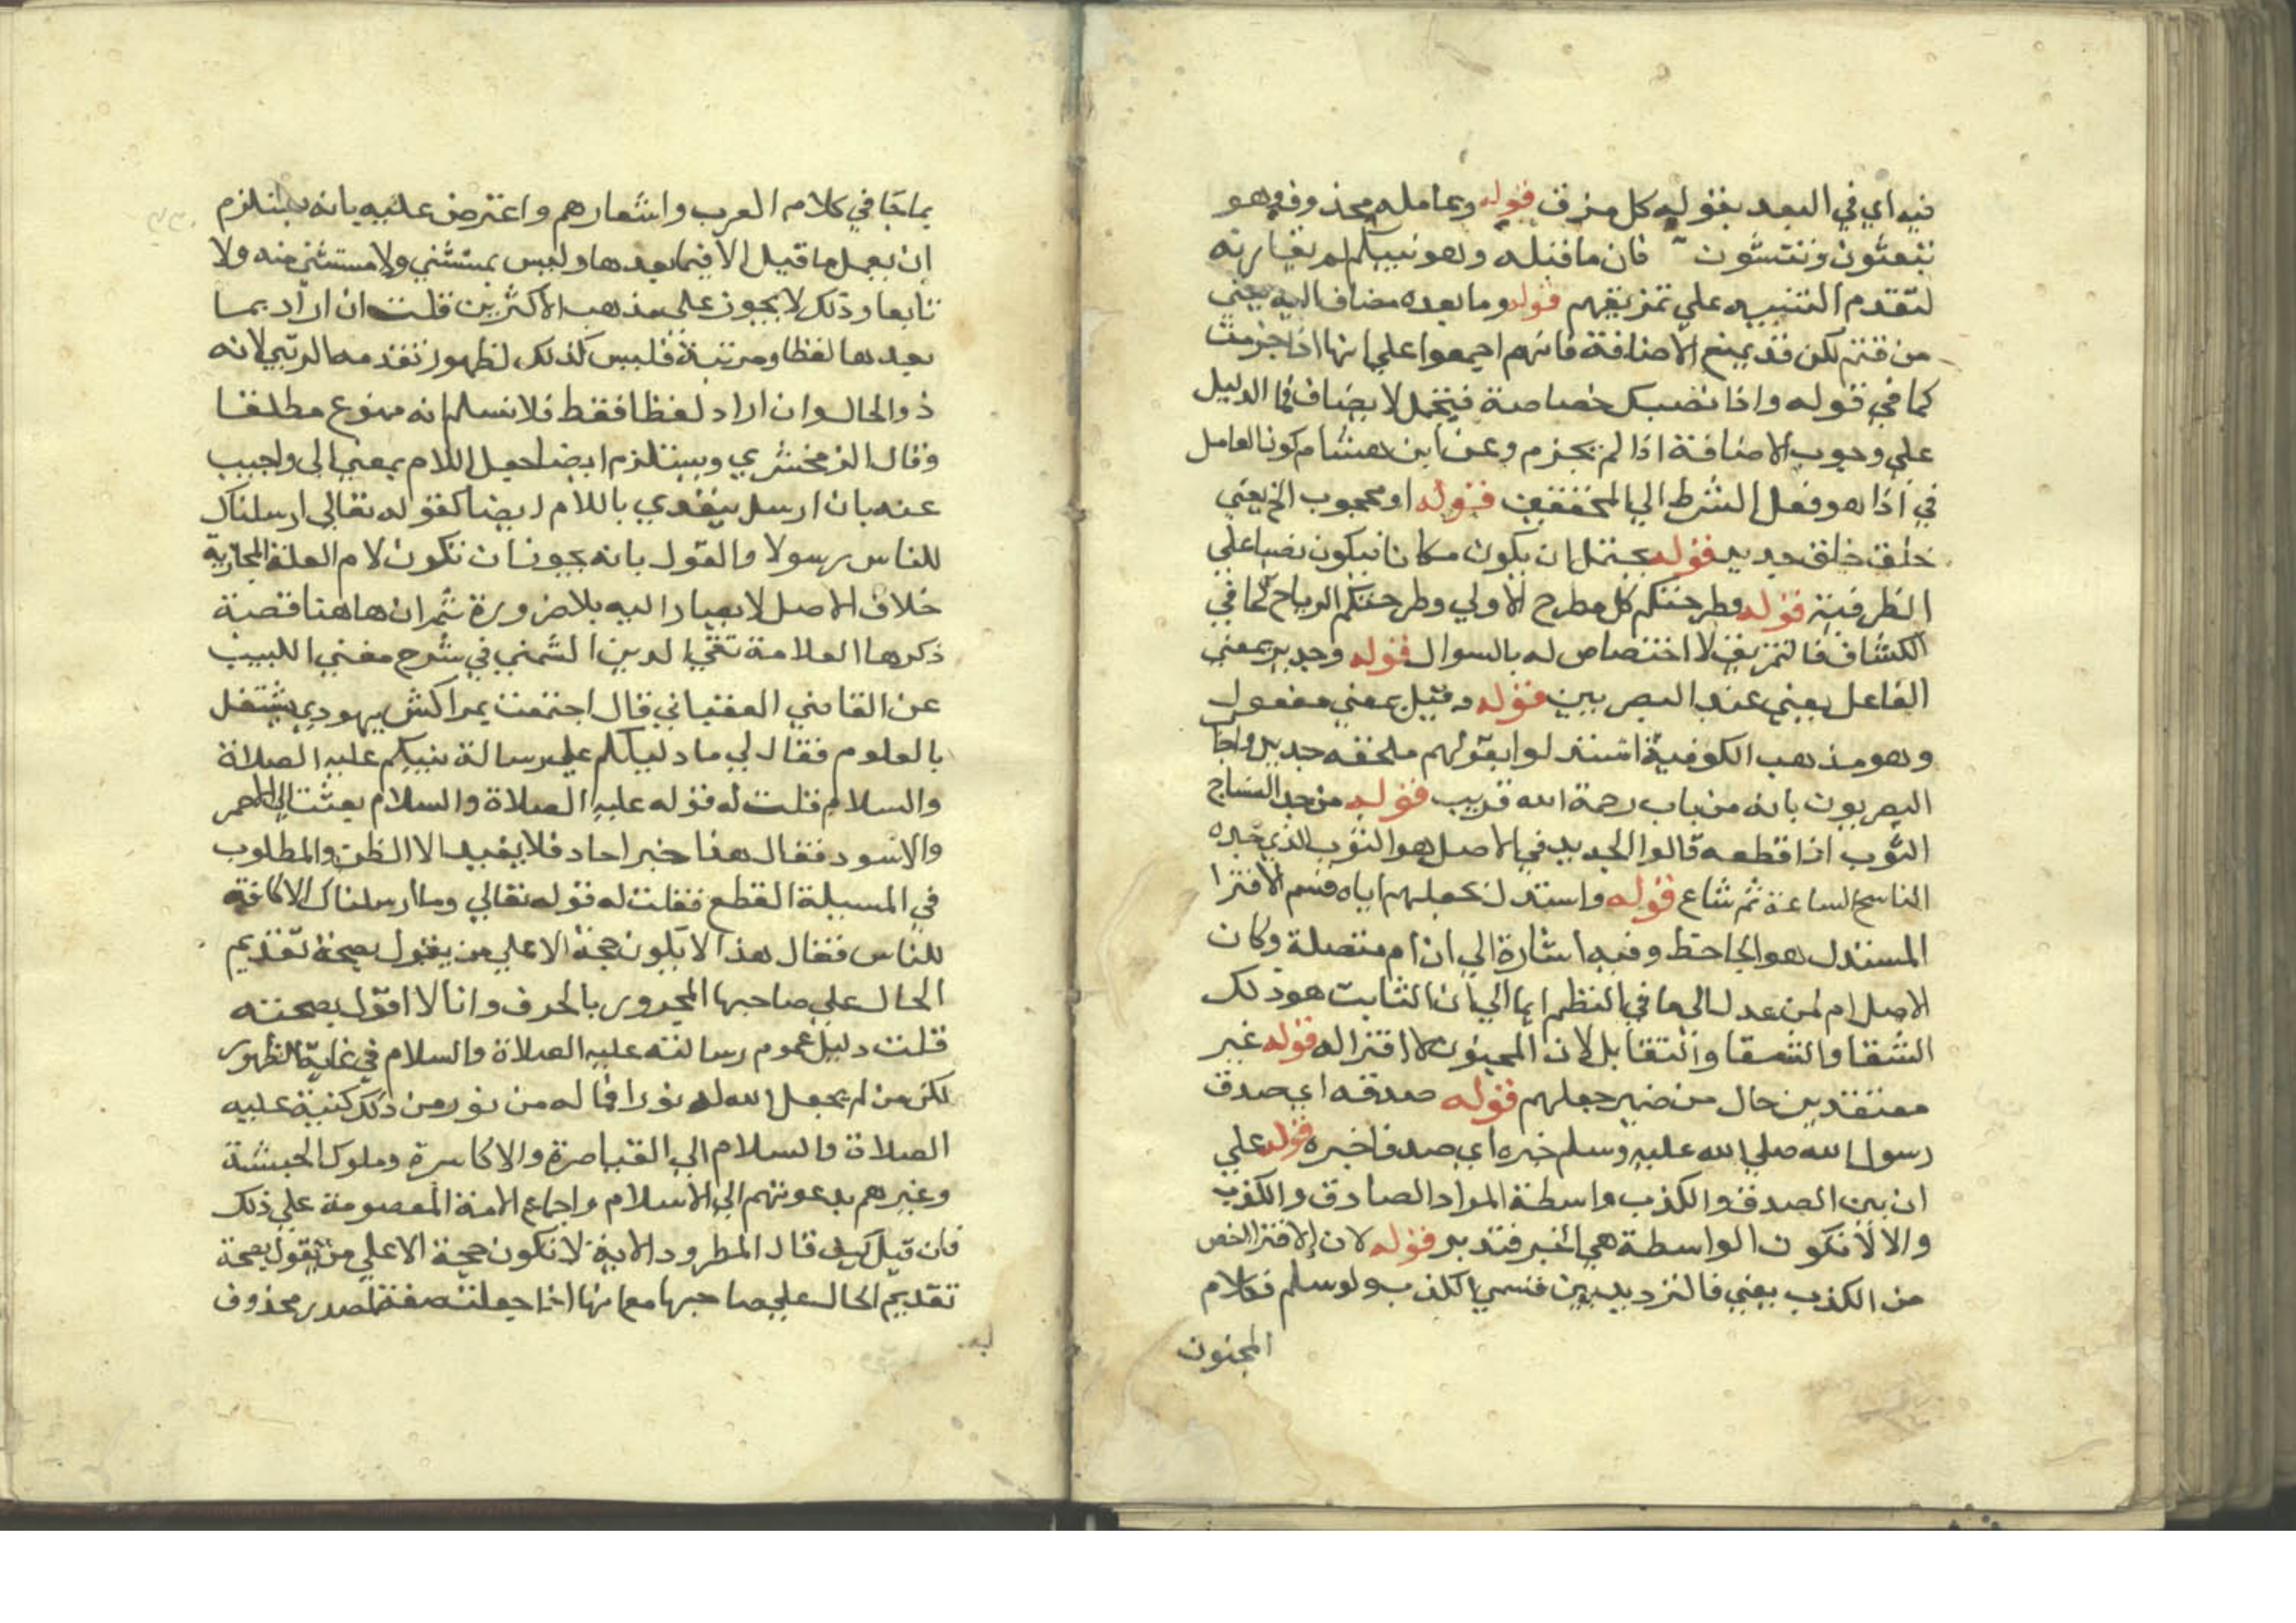 فيه اي في البعد بقوله كل مزق قوله وعامله محذوف وهو
تبعثون وتنشئون فان ما قبله وهو نبيكم لم يقارنه
لتقدم التنبيه علي تمزيقهم قوله وما بعده مضاف اليه يعني
من قتم لكن قد يمنع الاضافة فانهم اجمعوا علي انها اذا جزمت
كما في قوله واذا تصبك خصاصة فتجمل لا يضاف فما الدليل
علي وجوب الاضافة اذا لم يجزم وعن ابن هشام كون العامل
في اذا هو فعل الشرط الي المحققين قوله او محجوب الخ يعني
خلق خلق جديد قوله يحتمل ان يكون مكانا فيكون نصبا علي
الظرفية قوله وطرحتكم كل مطرح الاولي وطرحتكم الرياح كما في
الكشاف فالتمزيق لا اختصاص له بالسوال قوله وجديد بمعني
الفاعل يعني عند البصريين قوله وقيل بمعني مفعول
وهو مذهب الكوفية استدلوا بقولهم ملحفه جديد واجاب
البصريون بانه من باب رحمة الله قريب قوله من جد النساج
الثوب اذا قطعه قالوا الجديد في الاصل هو الثوب الذي جده
الناسج الساعة ثم شاع قوله واستدل بجعلهم اياه قسم الافترا
المستدل هو الجاحظ وفيه اشارة الي ان ام متصلة وكان
الاصل ام لم عدل الي ما في النظم ايما الي ان الثابت هو ذلك
الشقا والتقابل لان المجنون لا افترا له قوله غير
معتقدين حال من ضمير جعلهم قوله صدقه اي صدق
رسول الله صلي الله عليه وسلم خبره اي صدق اخبره قوله علي
ان بين الصدق والكذب واسطة المراد الصادق والكذب
والا لا تكون الواسطة هي الخبر فتدبر قوله لان الافترا اخص
من الكذب يعني فالترديد بين قسمي الكذب ولو سلم فكلام
المجنون
بما جا في كلام العرب واشعارهم واعترض عليه بانه يستلزم
ان يعمل ما قبل الا فيما بعدها وليس بمستثني ولا مستثني منه ولا
تابعا وذلك لا يجوز علي مذهب الاكثرين قلت ان اراد بما
بعدها لفظا ومرتبة فليس كذلك لظهور تقدمه الرتبي لانه
ذو الحال وان اراد لفظا فقط فلا نسلم انه ممنوع مطلقا
وقال الزمخشري ويستلزم ايضا جعل اللام بمعني الي واجيب
عنه بان ارسل يتعدي باللام ايضا كقوله تعالي ارسلناك
للناس رسولا والقول بانه يجوز ان تكون لام العلة المجازية
خلاف الاصل لا يصار اليه بلا ضرورة ثم ان هاهنا قصة
ذكرها العلامة تقي الدين الشمني في شرح مغني اللبيب
عن القاضي العقباني قال اجتمعت بمراكش بيهودي يشتغل
بالعلوم فقال لي ما دليلكم علي رسالة نبيكم عليه الصلاة
والسلام قلت له قوله عليه الصلاة والسلام بعثت الي الاحمر
والاسود فقال هذا خبر احاد فلا يفيد الا الظن والمطلوب
في المسيلة القطع فقلت له قوله تعالي وما ارسلناك الا كافة
للناس فقال هذا لا يكون حجة الا علي من يقول بصحة تقديم
الحال علي صاحبها المجرور بالحرف وانا لا اقول بصحته
قلت دليل عموم رسالته عليه الصلاة والسلام في غاية الظهور
لكن من لم يجعل الله له نورا فما له من نور من ذلك كتبه عليه
الصلاة والسلام الي القياصرة والاكاسرة وملوك الحبشة
وغيرهم بدعوتهم الي الاسلام واجماع الامة المعصومة علي ذلك
فان قيل كيف قال المطرود الاية لا تكون حجة الا علي من يقول بصحة
تقديم الحال علي صاحبها مع انها اذا جعلت صفة لمصدر محذوف